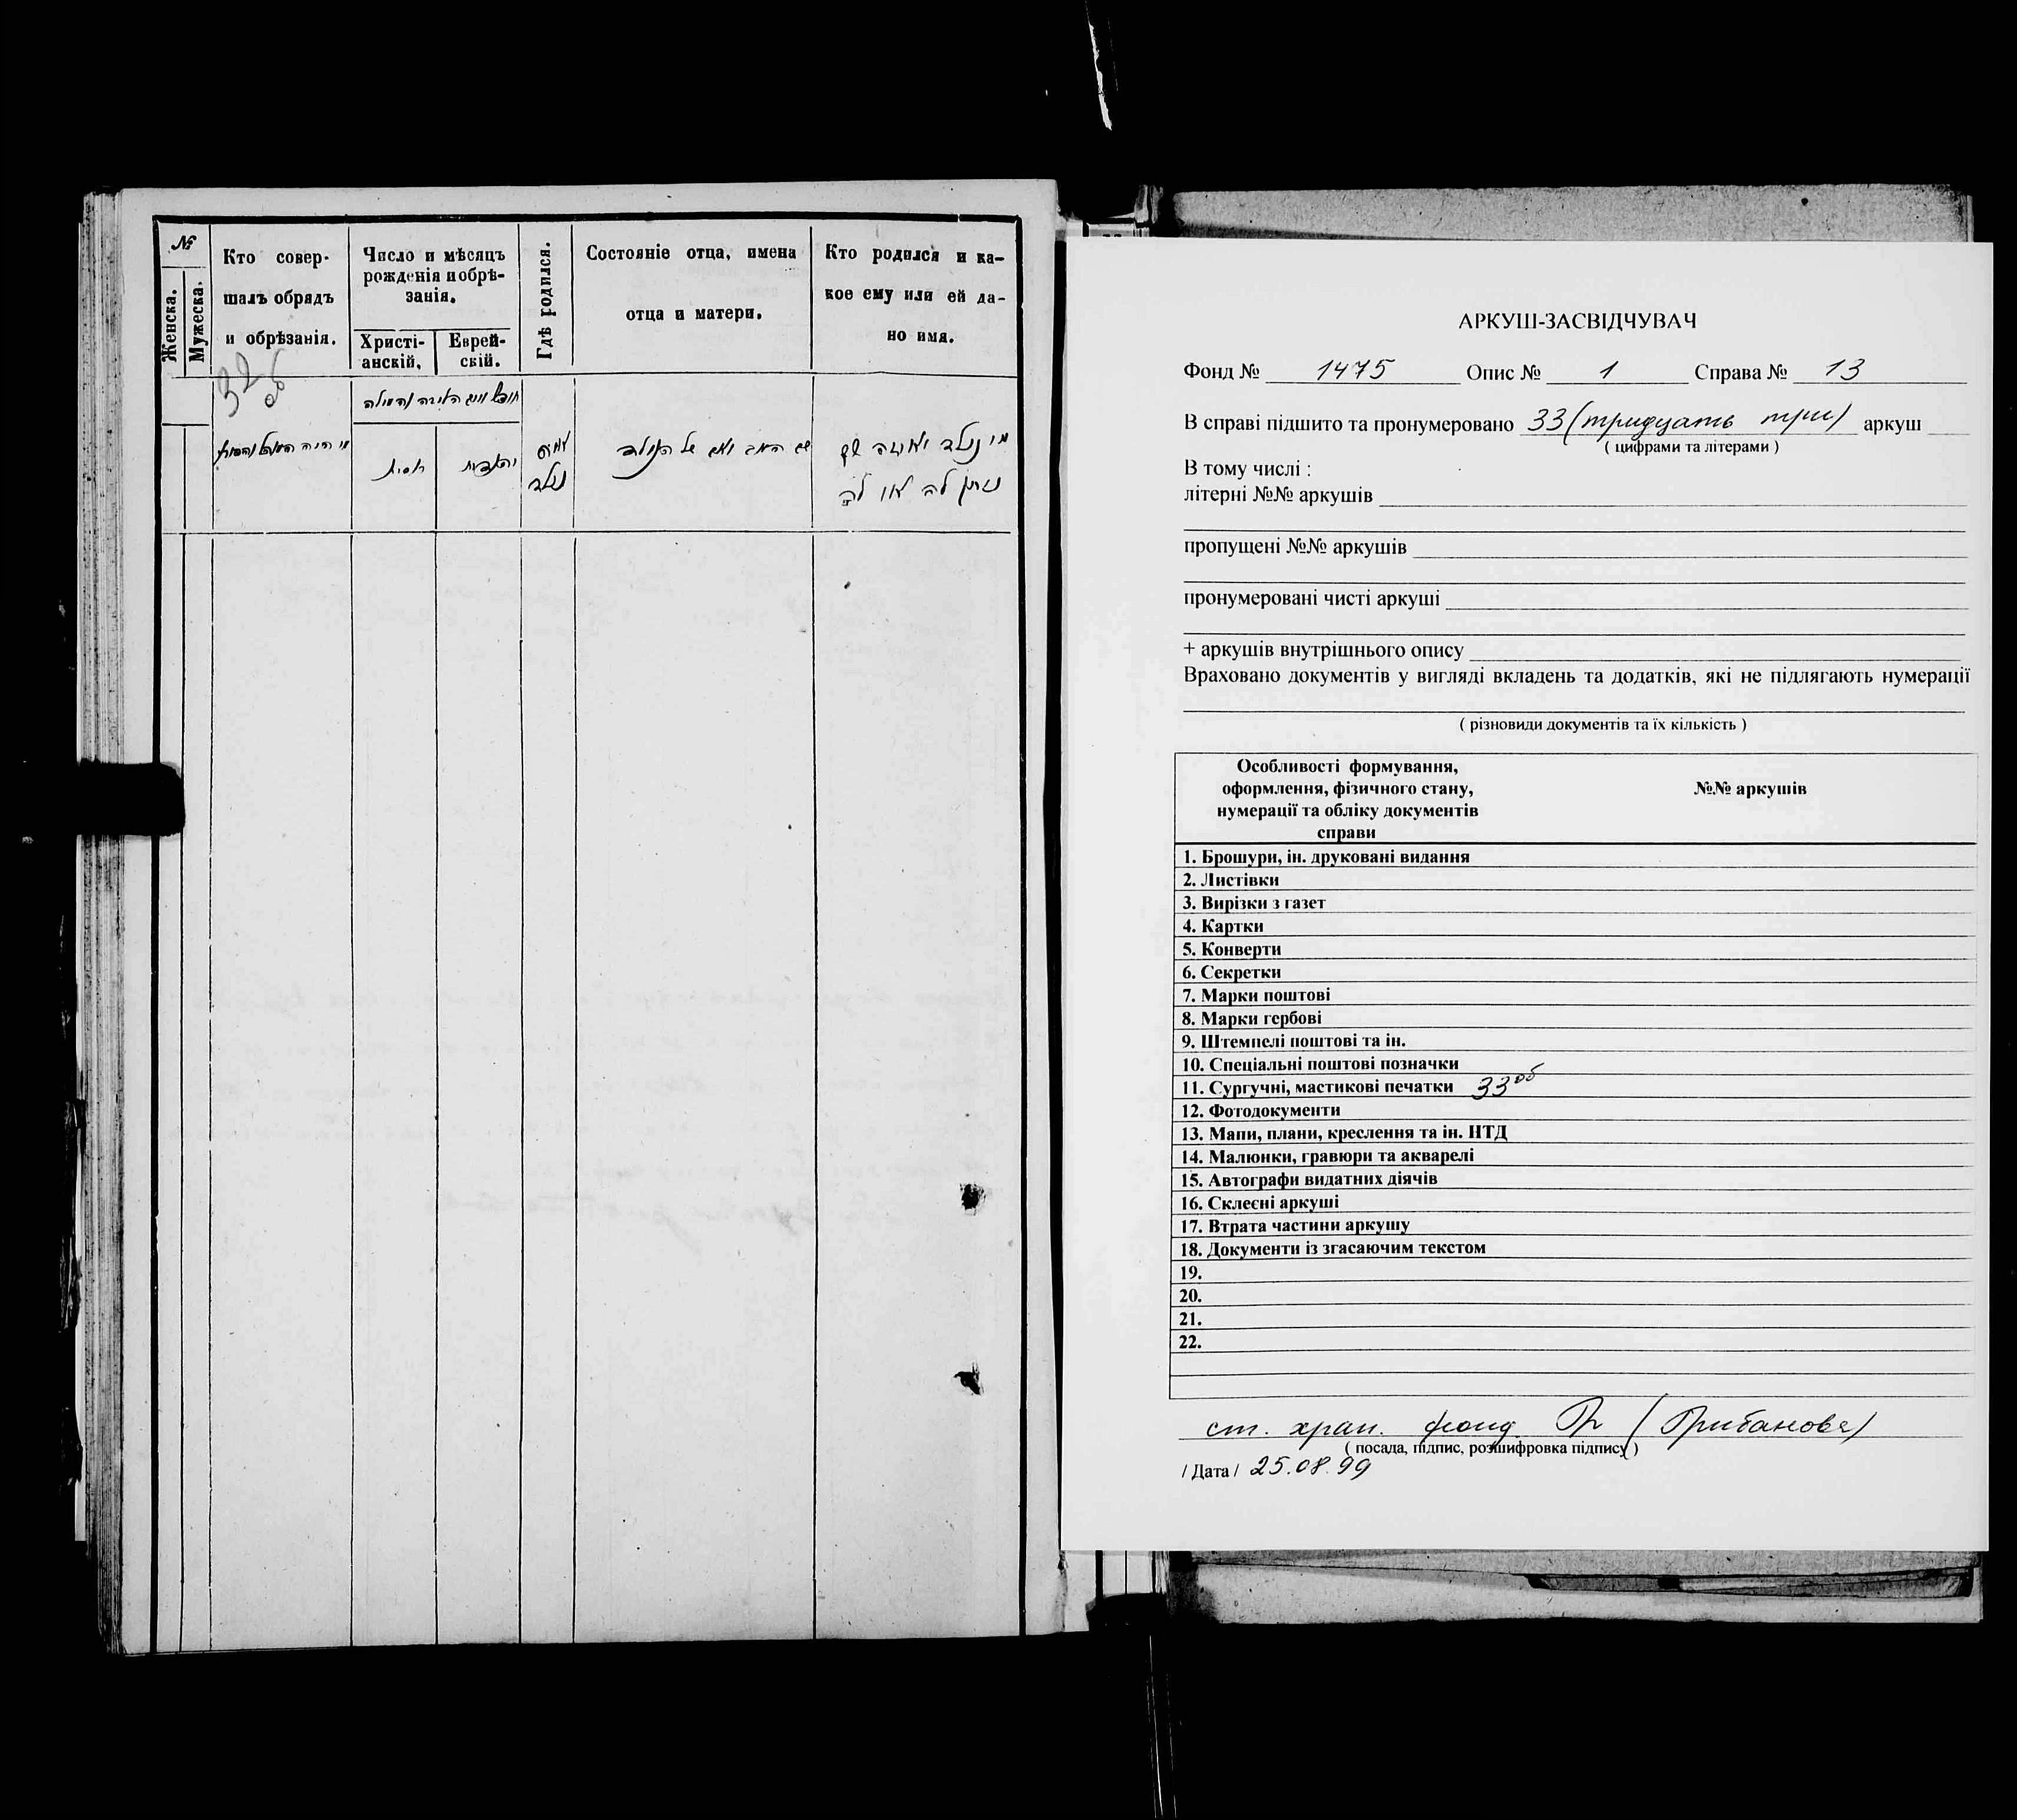 №
Женска.
Мужеска.
Кто совер-
шалъ обрядъ
и обрѣзанія.
Число и мѣсяцъ
рожденія и обрѣ-
занія.
Христі-
анскій.
Еврей-
скій.
Гдѣ родился.
Состояніе отца, имена
отца и матери.
Кто родился и ка-
кое ему или ей да-
но имя.
32 об
מי היה המוהל
חודש ויום הלידה והמילה
נולד
שם האב ואם של הנולד
מי נולד ואיזה שם
ניתן לה או לה
АРКУШ-ЗАСВІДЧУВАЧ
Фонд № 1475 Опис № 1 Справа № 13
В справі підшито та пронумеровано 33 (тридцать три) аркуш
( цифрами та літерами )
В тому числі :
літерні №№ аркушів
пропущені №№ аркушів
пронумеровані чисті аркуші
+ аркушів внутрішнього опису
Враховано документів у вигляді вкладень та додатків, які не підлягають нумерації
( різновиди документів та їх кількість )
Особливості формування,
оформлення, фізичного стану,
нумерації та обліку документів
справи
№№ аркушів
1. Брошури, ін. друковані видання
2. Листівки
3. Вирізки з газет
4. Картки
5. Конверти
6. Секретки
7. Марки поштові
8. Марки гербові
9. Штемпелі поштові та ін.
10. Спеціальні поштові позначки
11. Сургучні, мастикові печатки 33 об
12. Фотодокументи
13. Мапи, плани, креслення та ін. НТД
14. Малюнки, гравюри та акварелі
15. Автографи видатних діячів
16. Склеєні аркуші
17. Втрата частини аркушу
18. Документи із згасаючим текстом
19.
20.
21.
22.
ст. хран. фонд. (Грибанова)
( посада, підпис, розшифровка підпису )
/ Дата / 25.08.99